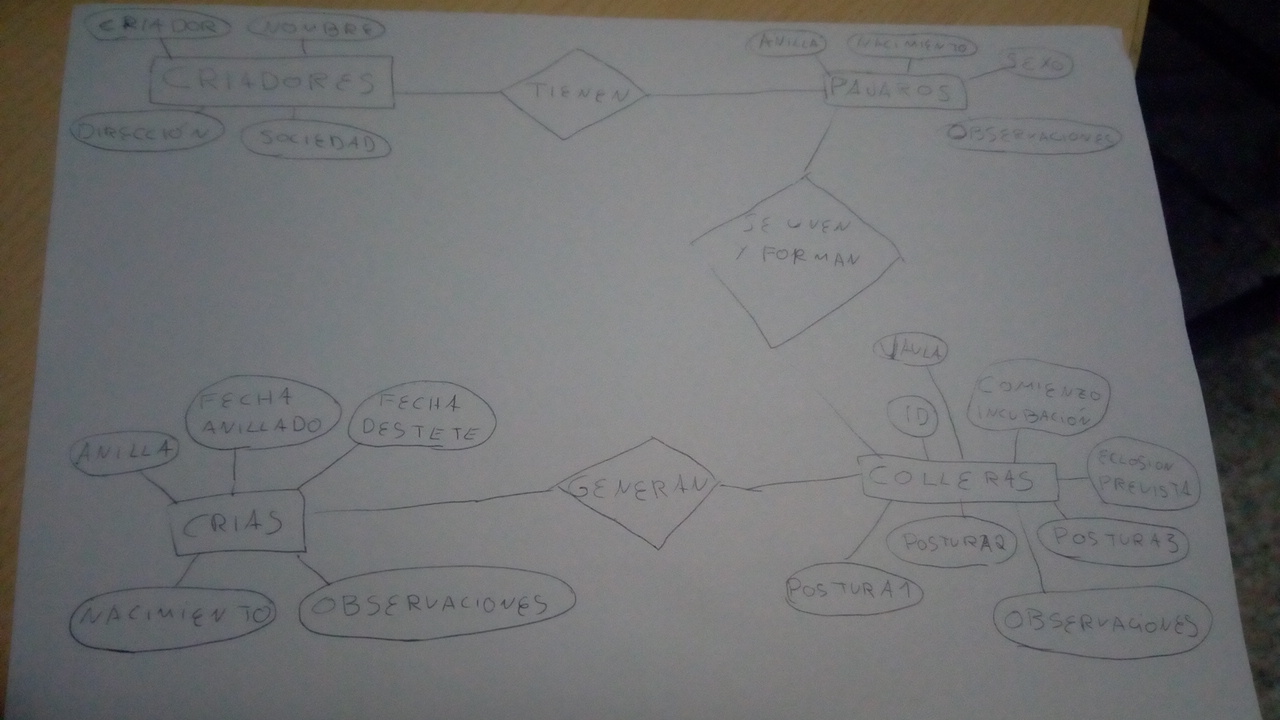 CRIADOR
NOMBRE
CRIADORES
DIRECCIÓN
SOCIEDAD
TIENEN
ANILLA
NACIMIENTO
SEXO
PAJAROS
OBSERVACIONES
SE UNEN
Y FORMAN
JAULA
ID
COMIENZO
INCUBACIÓN
ECLOSION
PREVISTA
COLLERAS
POSTURA1
POSTURA2
POSTURA3
OBSERVACIONES
GENERAN
ANILLA
FECHA
ANILLADO
FECHA
DESTETE
CRIAS
NACIMIENTO
OBSERVACIONES